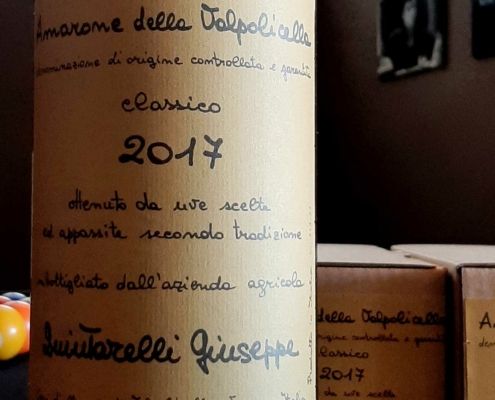 Amarone della Valpolicella
denominazione di origine controllata e garantita
classico
2017
ottenuto da uve scelte
ed appassite secondo tradizione
imbottigliato dall'azienda agricola
Quintarelli Giuseppe
della Valpolicella
origine controllata e garanti
classico
2017
da uve scelte
A
den